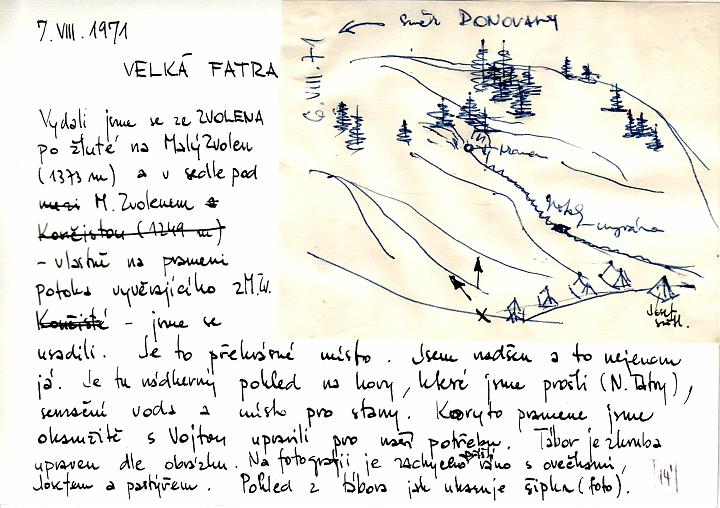 7. VIII. 1971
VELKÁ FATRA
Vydali jsme se ze ZVOLENA
po žluté na Malý Zvolen
(1373 m) a v sedle pod
M. Zvolenem a
Končistou (1249 m)
- vlastně na prameni
potoka vyvěrajícího z M. Zv.
Končisté - jsme se
usadili. Je to překrásné místo. Jsem nadšen a to nejenom
já. Je tu nádherný pohled na hory, které jsme prošli (N. Tatry),
senzační voda a místo pro stany. Koryto pramene jsme
okamžitě s Vojtou upravili pro naší potřebu. Tábor je zhruba
upraven dle obrázku. Na fotografii je zachyceno příští ráno s ovečkami,
Josefem a pastýřem. Pohled z tábora jak ukazuje šipka (foto).
6. VIII. 71
směr DONOVALY
pramen
potok
Josef